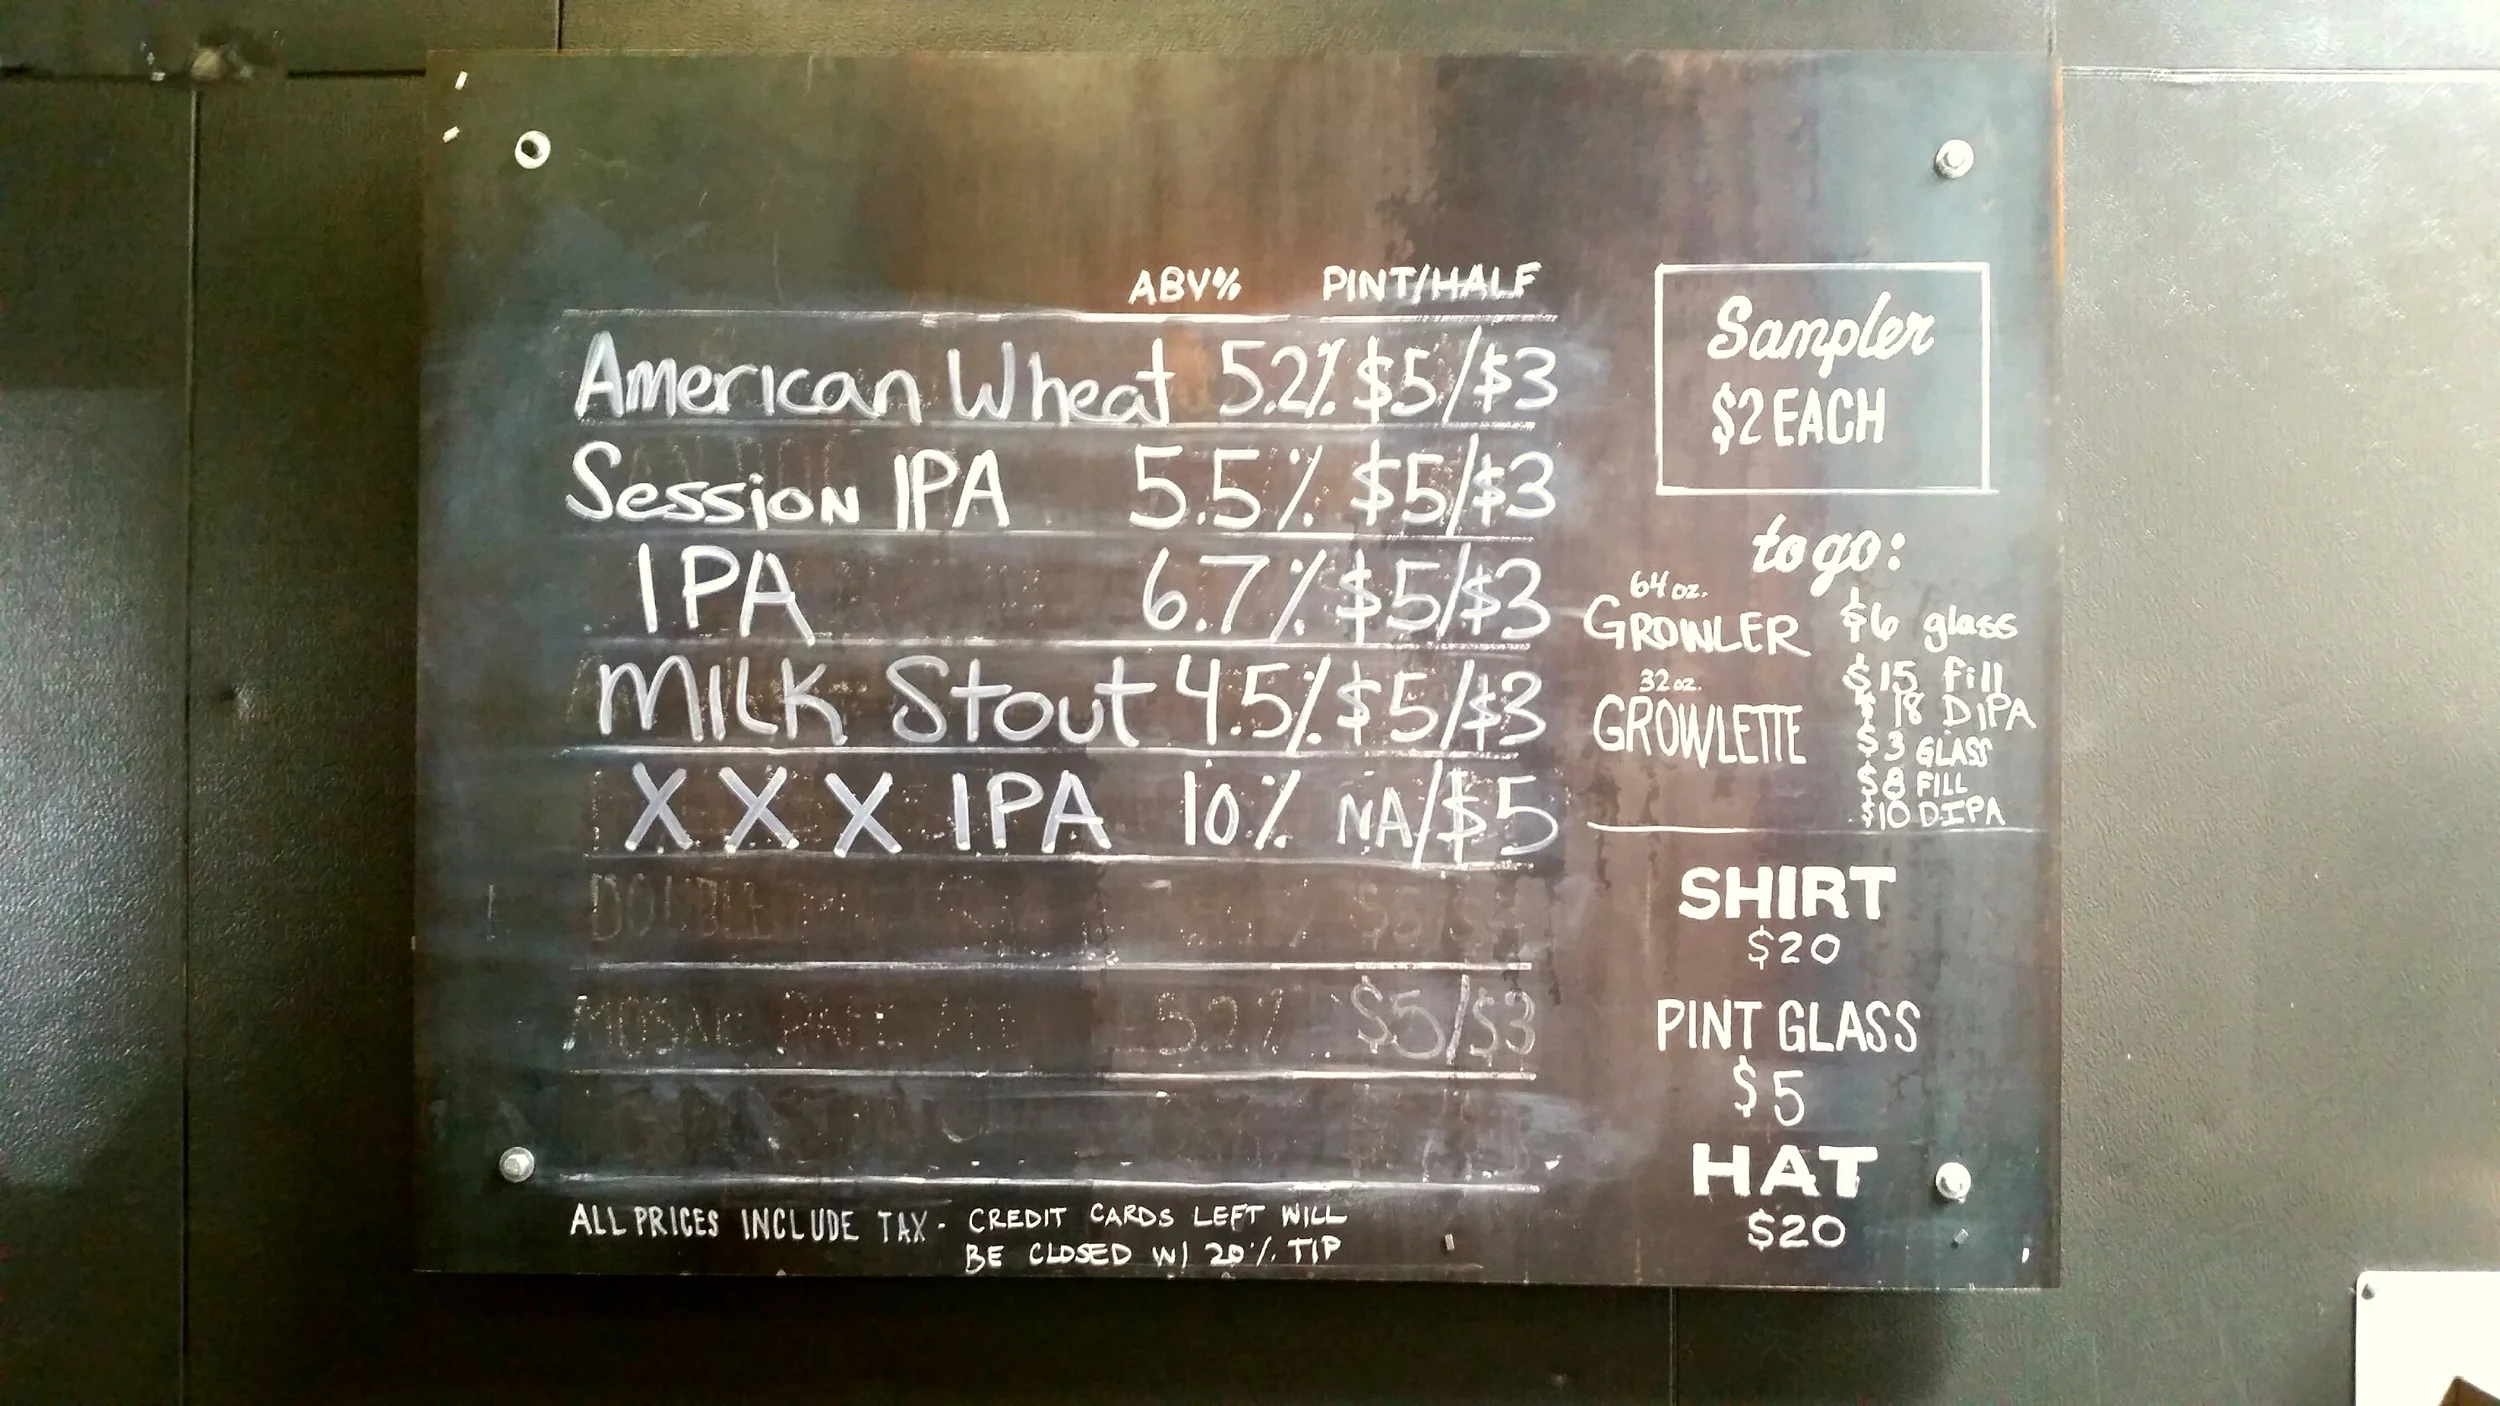 ABV% PINT/HALF
American Wheat 5.2% $5/$3
Session IPA 5.5% $5/$3
IPA 6.7% $5/$3
MILK Stout 4.5% $5/$3
XXX IPA 10% NA/$5
DOUBLE
5.2% $5/$3
ALL PRICES INCLUDE TAX - CREDIT CARDS LEFT WILL
BE CLOSED W/ 20% TIP
Sampler
$2 EACH
to go:
64 oz.
GROWLER $6 glass
$15 fill
$18 DIPA
32 oz.
GROWLETTE $3 GLASS
$8 FILL
$10 DIPA
SHIRT
$20
PINT GLASS
$5
HAT
$20